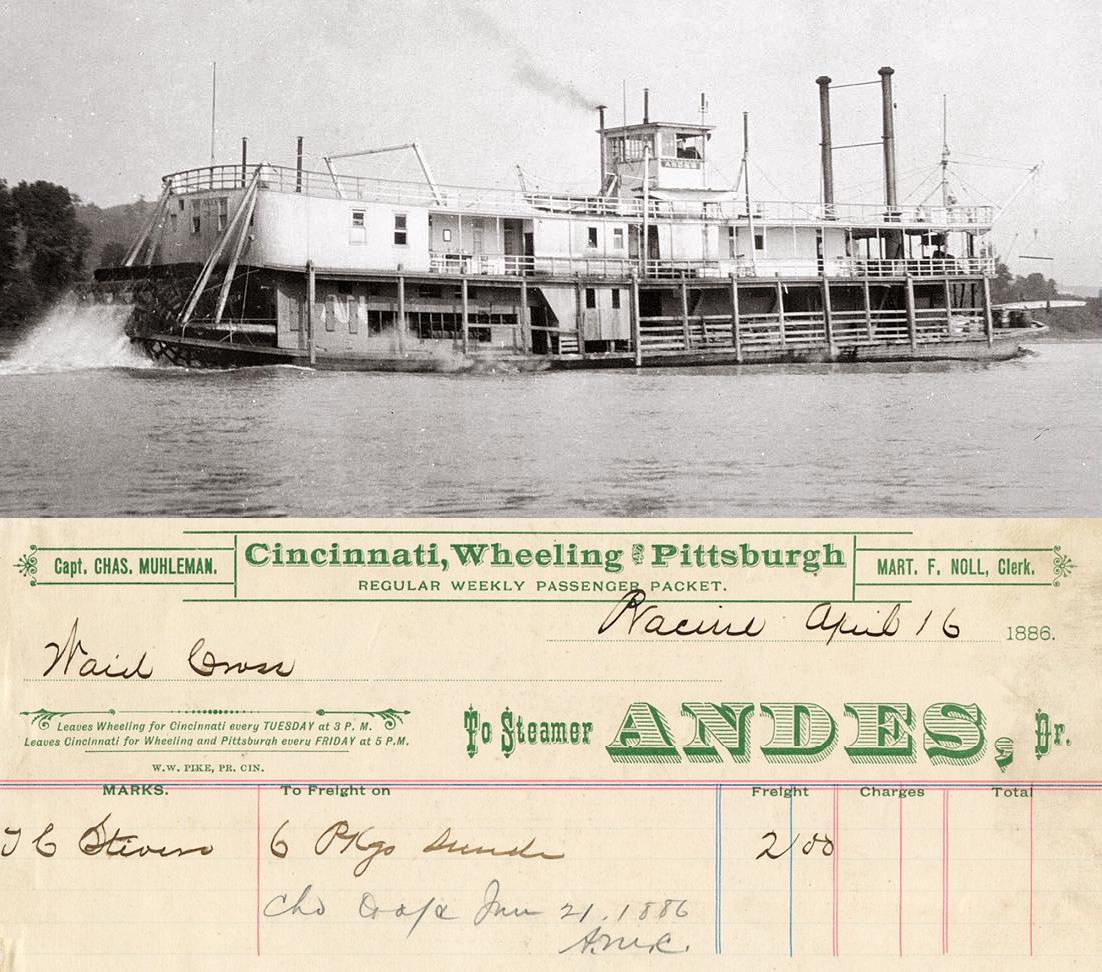 ANDES
Capt. CHAS. MUHLEMAN.
Cincinnati, Wheeling & Pittsburgh
REGULAR WEEKLY PASSENGER PACKET.
MART. F. NOLL, Clerk.
Racine April 16 1886.
Waid Cross
Leaves Wheeling for Cincinnati every TUESDAY at 3 P. M.
Leaves Cincinnati for Wheeling and Pittsburgh every FRIDAY at 5 P.M.
W.W. PIKE, PR. CIN.
To Steamer ANDES, Dr.
MARKS. To Freight on Freight Charges Total
Stivers 6 Pkgs 2 00
21, 1886